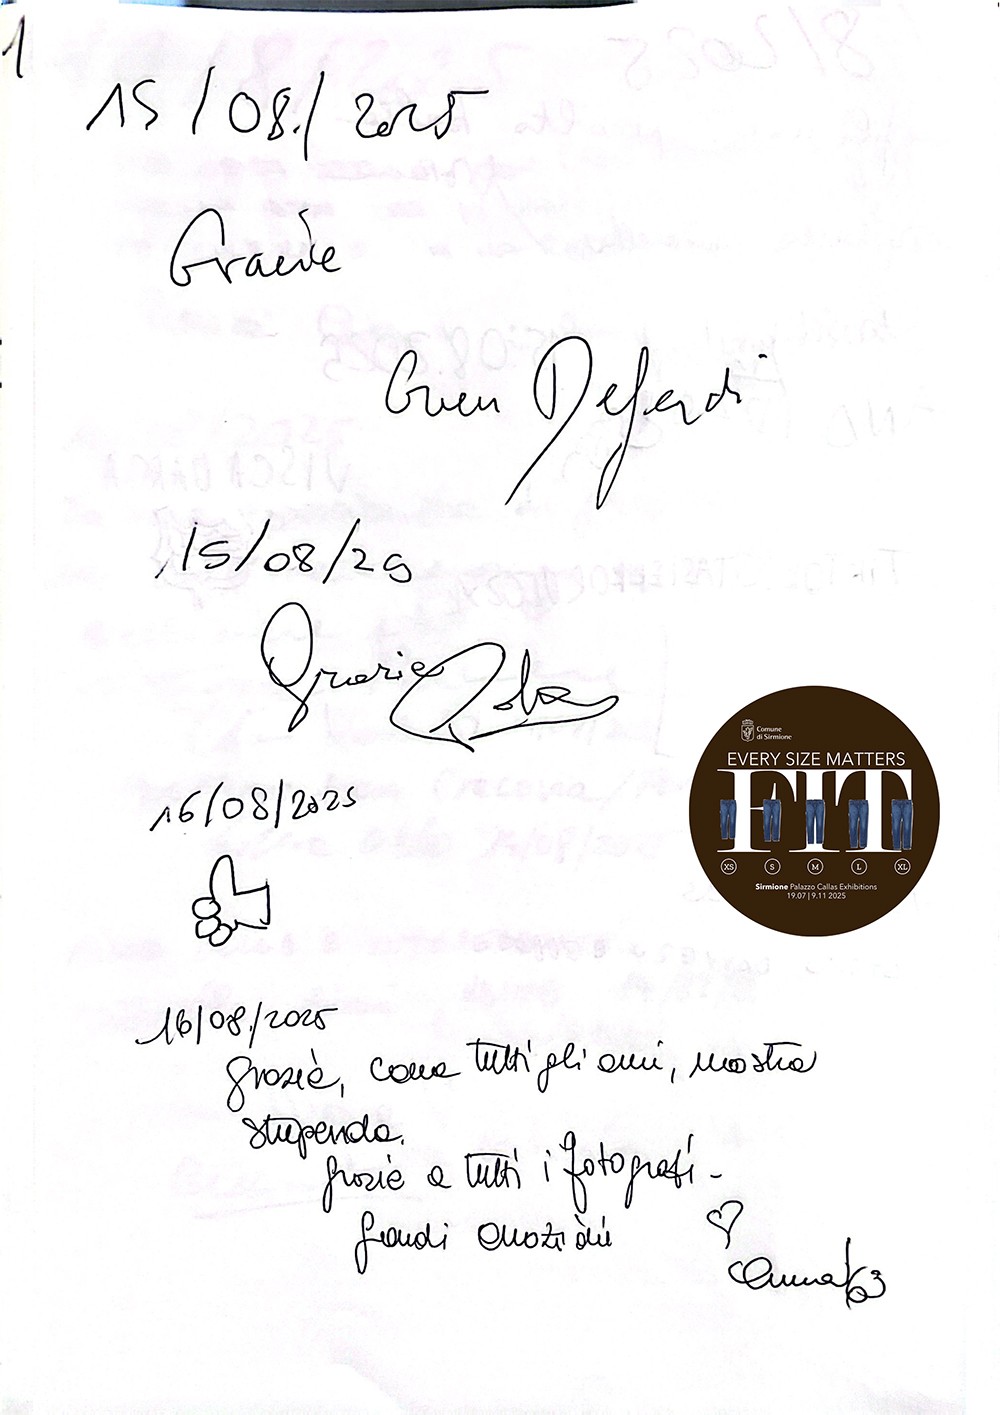 1
15/08/2025
Grazie
15/08/25
Grazie
16/08/2025
16/08/2025
grazie, come tutti gli anni, mostra
stupenda.
grazie a tutti i fotografi -
grandi emozioni
Comune
di Sirmione
EVERY SIZE MATTERS
FIT
XS S M L XL
Sirmione Palazzo Callas Exhibitions
19.07 | 9.11 2025